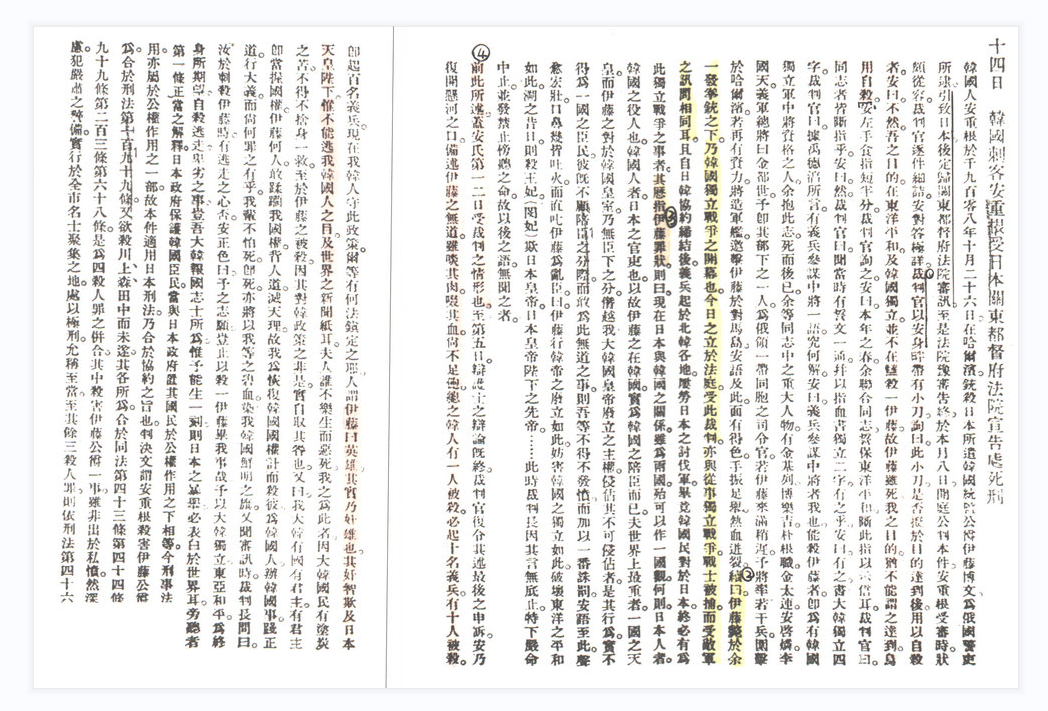 十四日 韓國刺客安重根受日本關東都督府法院宣告處死刑
韓國人安重根於千九百零八年十月二十六日在哈爾濱銃殺日本所遣韓國統監公爵伊藤博文爲俄國警吏
所逮引致日本後定歸關東都督府法院審訊至是法院豫審告終於本月八日開庭公判本件安重根受審時狀
頗從容裁判官逐件細詰安對答極詳裁判官以安身時帶有小刀詢曰此小刀是否擬於目的達到後用以自殺
者安曰不然吾之目的在東洋平和及韓國獨立並不在僅殺一伊藤故伊藤雖死我之目的猶不能謂之達到烏
用自殺安左手食指短半分裁判官詢之安曰本年之春余聯合同志誓保東洋平和斷此指以示信耳裁判官曰
同志者皆斷指乎安曰然裁判官曰聞當時有誓文一通幷以指血書獨立二字有之乎安曰有之書大韓獨立四
字裁判官曰據禹德淳所言有義兵參謀中將一語究何解安曰義兵參謀中將者我也能殺伊藤者卽爲有韓國
獨立軍中將資格之人余抱此志死而後已余等同志中之重大人物有金基列博樂吉朴根職金太連安啓燐李
國天義軍總將曰金都世予卽其部下之一人爲俄領一帶同胞之司令官若伊藤來滿稍遲予將率若干兵圍擊
於哈爾濱若再有資力將造軍艦邀擊伊藤於對馬島安語及此面有得色手振足舉熱血迸裂續曰伊藤斃於余
一發拳銃之下乃韓國獨立戰爭之開幕也今日之立於法庭受此裁判亦與從事獨立戰爭戰士被捕而受敵軍
之訊問相同耳且自日韓協約締結後義兵起於北韓各地屢勞日本之討伐軍畢竟韓國民對於日本終必有爲
此獨立戰爭之事者其歷指伊藤罪狀則曰現在日本與韓國之關係雖爲兩國殆可以作一國觀何則日本人者
韓國之役人也韓國人者日本之官吏也以故伊藤之在韓國實爲韓國之陪臣而已夫世界上最重者一國之天
皇而伊藤對於韓國皇室乃無臣下之分僭越我大韓國皇帝府立之主權侵佔其不可侵佔者是其行爲實不
得爲一國之臣民彼旣不顧陪臣之分際而敢爲此無道之事則吾等不得不發憤而加以一番誅罰安語至此聲
愈宏壯口鼻幾皆吐火而直叱伊藤爲亂臣曰伊藤行韓帝之廢立如此妨害韓國之獨立如此破壞東洋之平和
如此溯之皆昔則殺王妃(閔妃)欺日本皇帝日本皇帝陛下之先帝……此時裁判長因其言無底止特下嚴命
中止並發禁止傍聽之命故以後之語無聞之者
④ 前此所述蓋安氏第一二日受裁判之情形也至第五日辯護士之辯論旣終裁判官復令其述最後之申訴安乃
復開懸河之口備述伊藤之無道雖啖其肉啜其血尙不足飽總之韓人有一人被殺必起十名義兵有十人被殺
卽起百名義兵現在我韓人守此政策爾等有何法鎭定之耶人謂伊藤曰英雄其實乃奸雄也其奸智欺及日本
天皇陛下惟不能逃我韓國人之目及世界之新聞紙耳夫人誰不樂生而惡死我之爲此者因大韓國民有塗炭
之苦不得不捨身一救至於伊藤之被殺因其對韓政策之非是實自取其咎也又曰我大韓有國有君主有君主
卽當握國權伊藤何人敢蹂躪我國權背人道滅天理故我爲恢復國權計而殺彼爲韓國人辦韓國事踐正
道行大義而尙何罪之有乎我輩不怕死卽死亦將以我等之碧血染我韓國鮮明之旗又聞審訊時裁判長問曰
汝於刺殺伊藤時有逃走之心否安正色曰予之志願豈止以殺一伊藤畢我事哉予以大韓獨立東亞和平爲終
身所期望自殺逃走卑劣之事豈吾大韓報國志士所爲惟予能生一刻則日本之暴舉必表白於世界耳旁聽者
第一條正當之解釋日本政府保護韓國臣民當與日本政府置其國民於公權作用之下相等今刑事法
用亦屬於公權作用之一部故本件適用日本刑法乃合於協約之旨也判決文謂安重根殺害伊藤公爵
爲合於刑法第百九十九條又欲殺川上森田中而未遂其各所爲合於同法第四十三條第四十四條
九十九條第二百三條第六十八條是爲四殺人罪之併合其中殺害伊藤公爵一事雖非出於私憤然深
慮犯嚴肅之警備實行於全市名士聚集之地處以極刑允稱至當至其餘三殺人罪則依刑法第四十六